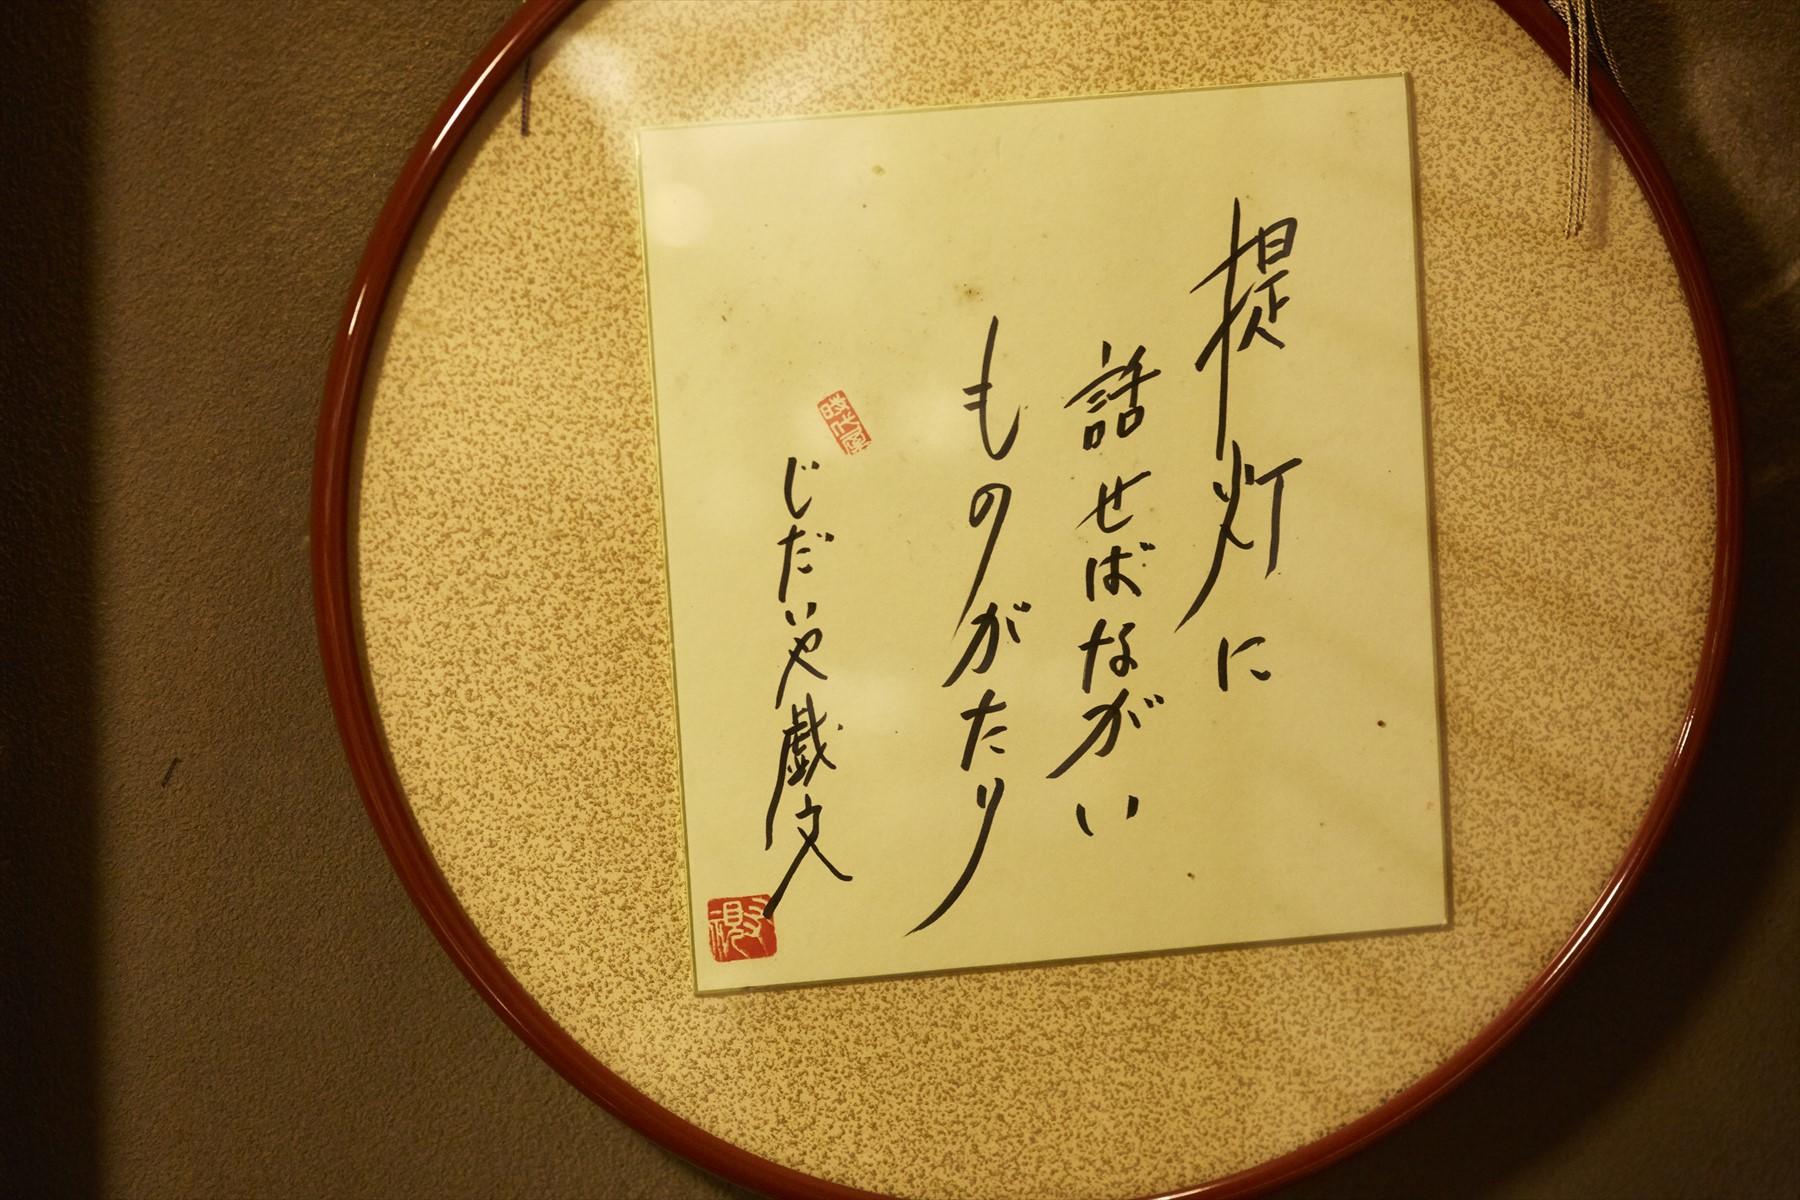 提灯に
話せばながい
ものがたり
じだいや戯文
時代屋